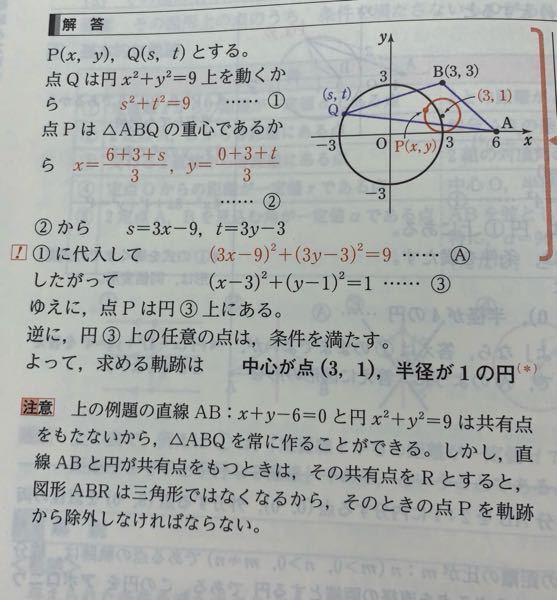 解 答
P(x, y), Q(s, t) とする。
点 Q は円 x²+y²=9 上を動くか
ら s²+t²=9 …… ①
点 P は △ABQ の重心であるか
ら x=\frac{6+3+s}{3}, y=\frac{0+3+t}{3}
…… ②
②から s=3x-9, t=3y-3
! ①に代入して (3x-9)²+(3y-3)²=9 …… Ⓐ
したがって (x-3)²+(y-1)²=1 …… ③
ゆえに, 点 P は円 ③ 上にある。
逆に, 円 ③ 上の任意の点は, 条件を満たす。
よって, 求める軌跡は 中心が点 (3, 1), 半径が 1 の円(*)
y
3
B(3, 3)
(s, t)
Q
(3, 1)
A
-3
O
P(x, y)
3
6
x
-3
注意 上の例題の直線 AB : x+y-6=0 と円 x²+y²=9 は共有点
をもたないから, △ABQ を常に作ることができる。しかし, 直
線 AB と円が共有点をもつときは, その共有点を R とすると,
図形 ABR は三角形ではなくなるから, そのときの点 P を軌跡
から除外しなければならない。